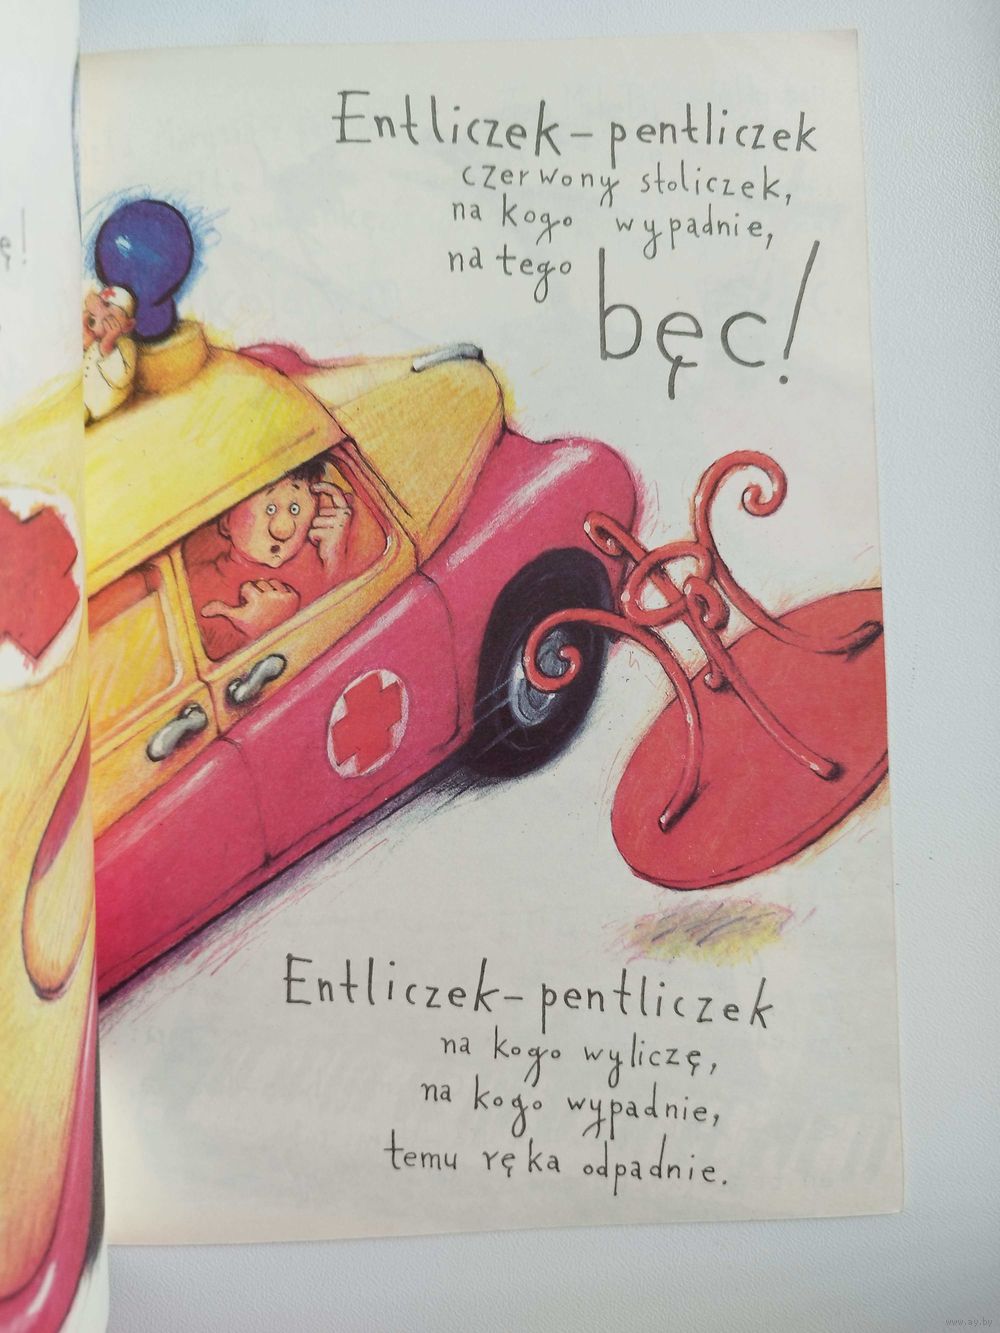 Entliczek-pentliczek
czerwony stoliczek,
na kogo wypadnie,
na tego
bęc!
Entliczek-pentliczek
na kogo wyliczę,
na kogo wypadnie,
temu ręka odpadnie.
ę!
www.ay.by